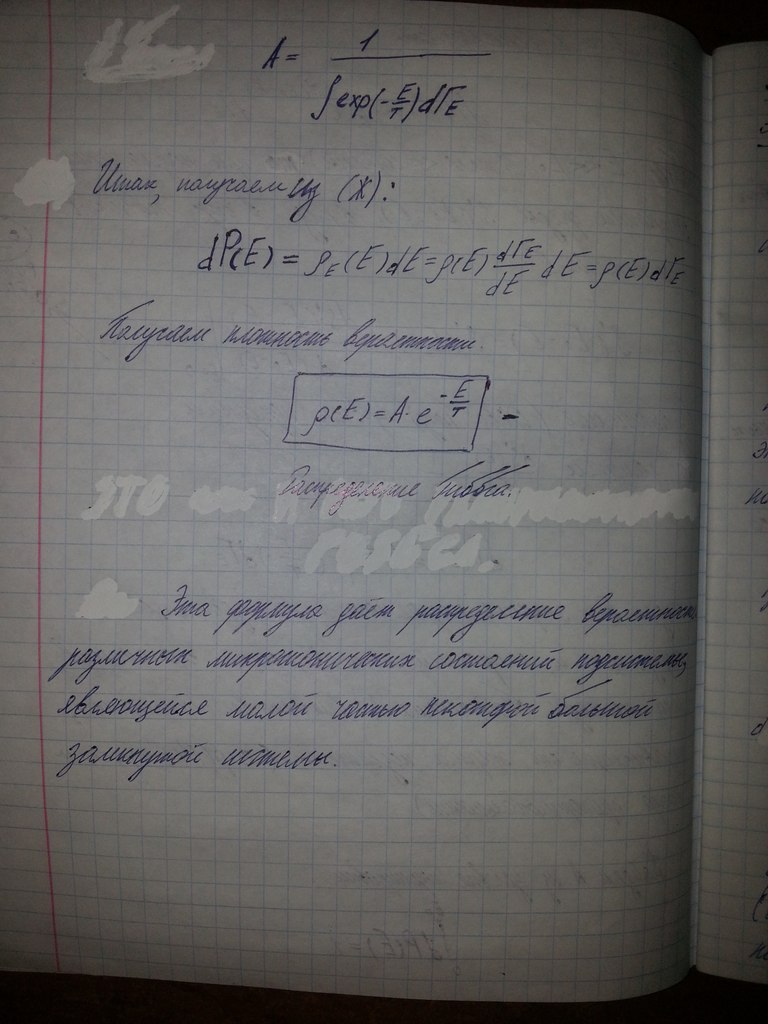 A = 1 / ∫exp(-E/T)dΓ_E
Итак, получаем из (Ж):
dP(E) = ρ_E(E)dE = ρ(E) dΓ_E/dE dE = ρ(E)dΓ_E
Получаем плотность вераетности.
ρ(E) = A · e^(-E/T) -
Распределение Гиббса.
Эта формула даёт распределение вераетност
различных микроскопических состаений подсистемы,
являющейся малой частью некоторой большой
замкнутой системы.